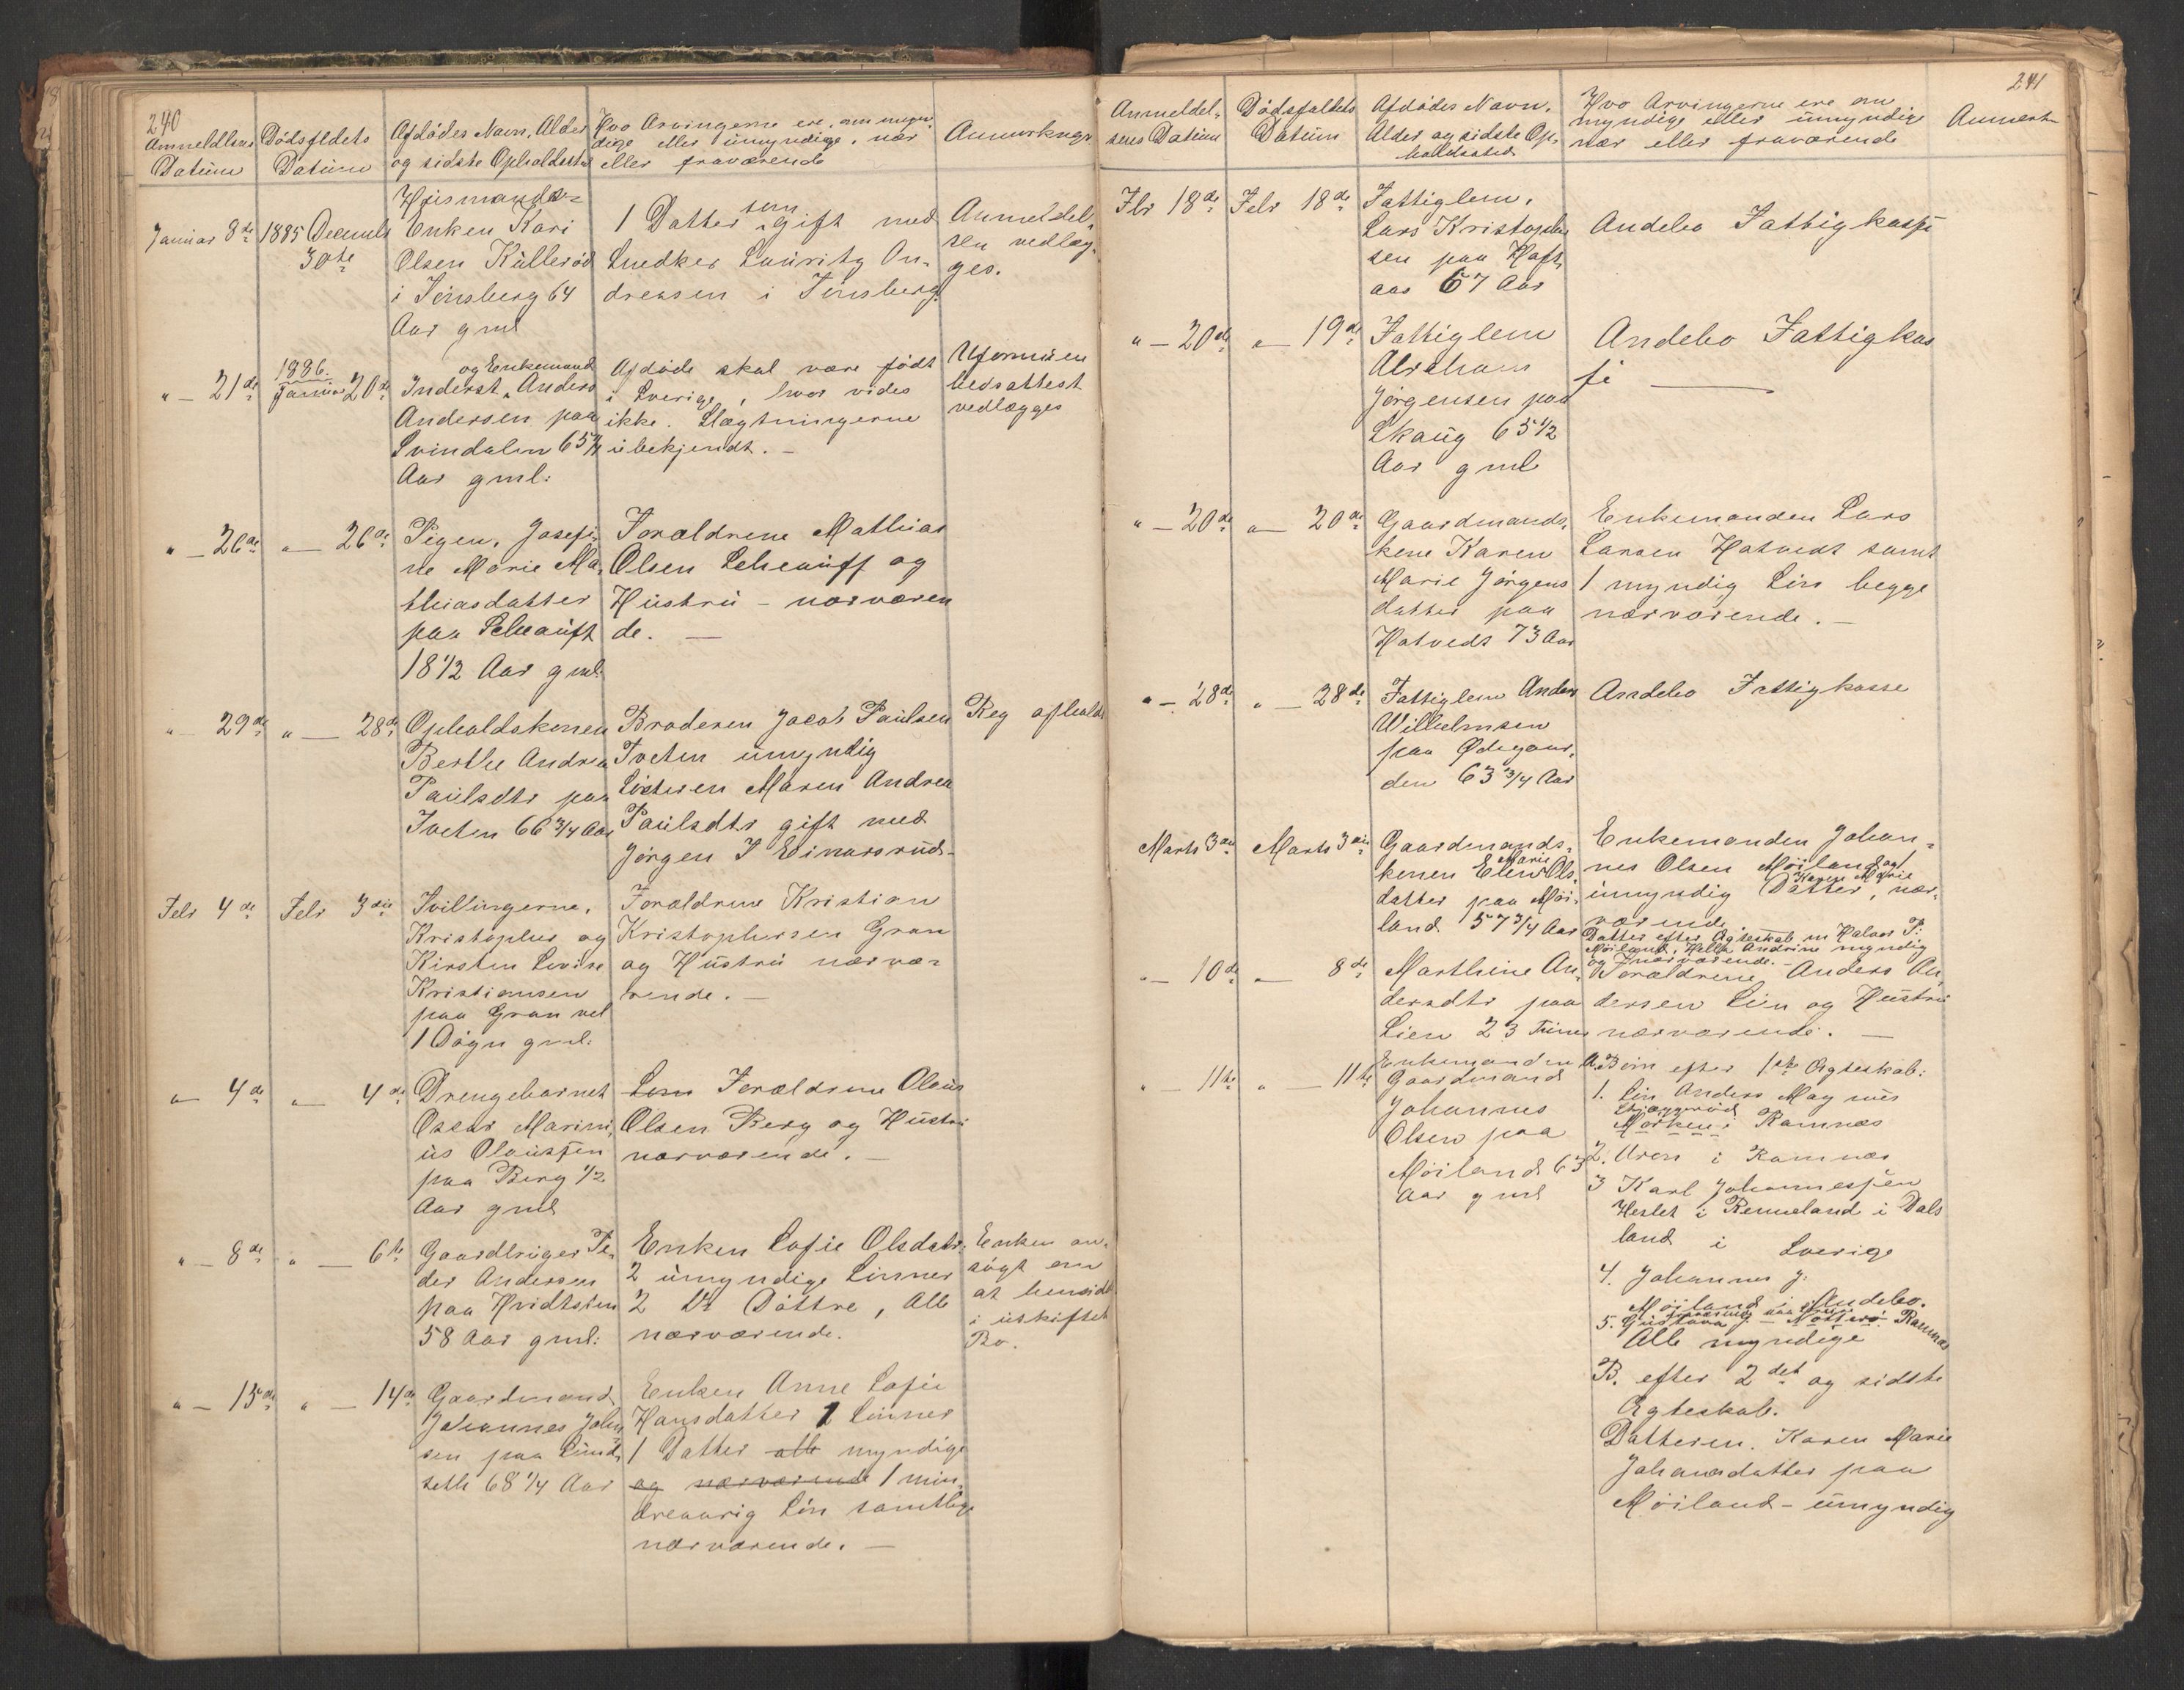 240
Anmeldlsens Datum
Dødsfldets Datum
Afdødes Navn, Alder og sidste Opholdssted
Hvo Arvingerne ere, om myn-
dige eller umyndige, nær
eller fraværende
Anmerkngr
Januar 8de
1885 Decembr
30te
Husmands-
Enken Kari
Olsen Kullerød
i Tønsberg 64
Aar gml
1 Datter som gift med
Snedker Lauritz An-
dreasen i Tønsberg.
Anmeldel-
sen vedlæg-
ges.
" — 21de
1886.
Januar 20de
og Enkemand
Inderst Anders
Andersen paa
Svindalen 65
Aar gml:
Afdøde skal være født
i Sverige, hvor vides
ikke. Slægtningerne
ubekjendt. —
Uformuen
hedsattest
vedlægges
" — 26de
" — 26de
Pigen, Josefi-
ne Marie Ma-
thiasdatter
paa Scheauft
18 1/2 Aar gml:
Forældrene Mathias
Olsen Scheauff og
Hustru — nærværen
de. —
" — 29de
" — 28de
Opholdskonen
Berthe Andrea
Paulsdtr paa
Tveten 66 3/4 Aar
Broderen Jacob Paulsen
Tveten umyndig
Søsteren Maren Andrea
Paulsdtr gift med
Jørgen I Einarsrud-
Reg afholdt
Febr 4de
Febr 3die
Tvillingerne,
Kristopher og
Kirsten Lovise
Kristiansen
paa Gran vel
1 Døgn gml:
Forældrene Kristian
Kristophersen Gran
og Hustru nærvæ-
rende. —
" — 4de
" — 4de
Drengebarnet
Oscar Marini-
us Olaussen
paa Berg 1/2
Aar gml
Som Forældrene Olaus
Olsen Berg og Hustru
nærværende. —
" — 8de
" — 6te
Gaardbruger Pe-
der Andersen
paa Hvidtsten
58 Aar gml:
Enken Sofie Olsdatr.
2 umyndige Sønner
2 Do Døttre, Alle
nærværende.
Enken an-
søgt om
at hensidde
i uskiftet
Bo.
" — 15de
" — 14de
Gaardmand
Johannes Johs
sen paa Sund-
seth 68 1/4 Aar
Enken Anne Sofie
Hansdatter 1 Sønner
1 Datter alle myndige
og nærværende 1 min-
dreaarig Søn samtlige
nærværende. —
241
Anmeldel-
sens Datum
Dødsfaldets
Datum
Afdødes Navn,
Alder og sidste Op-
holdssted
Hvo Arvingerne ere om
myndige eller umyndige
nær eller fraværende
Anmerk
Fbr 18de
Febr 18de
Fattiglem,
Lars Kristopher
sen paa Haft-
aas 67 Aar
Andebo Fattigkasse
" — 20de
" — 19de
Fattiglem
Abraham
Jørgensen paa
Skaug 65 1/2
Aar gml
Andebo Fattigkas
se —
" — 20de
" — 20de
Gaardmands-
kone Karen
Marie Jørgens
datter paa
Hatvedt 73 Aar
Enkemanden Lars
Larsen Hatvedt samt
1 myndig Søn begge
nærværende. —
" — 28de
" — 28de
Fattiglem Anders
Wilhelmsen
paa Ødegaar-
den 63 3/4 Aar
Andebo Fattigkasse
Marts 3die
Marts 3die
Gaardmands-
konen Elen Marie Ols-
datter paa Møi-
land 57 3/4 Aar
Enkemanden Johan-
nes Olsen Møiland og 1
umyndig Datter, Karen Marie nær-
værende
Datter efter Ægteskab m Halvor P:
Møiland, Helle Andrine myndig
og nærværende. —
" — 10de
" — 8de
Marthine An-
dersdtr paa
Lien 23 Timer
Forældrene Anders An-
dersen Lien og Hustru
nærværende. —
" — 11te
" — 11te
Enkemanden
Gaardmand
Johannes
Olsen paa
Møiland 63
Aar gml
A. Børn efter 1ste Ægteskab:
1. Søn Anders Magnus
Skjæggerød
Morken i Ramnæs
2. Aren i Ramnæs
3 Karl Johannessen
Heslet i Renneland i Dals
land i Sverige
4. Johannes J:
Møiland i Andebo.
5. Gustava Nøtterø Ramnæs
Alle myndige
B. efter 2det og sidste
Ægteskab.
Datteren. Karen Marie
Johansdatter paa
Møiland — umyndig